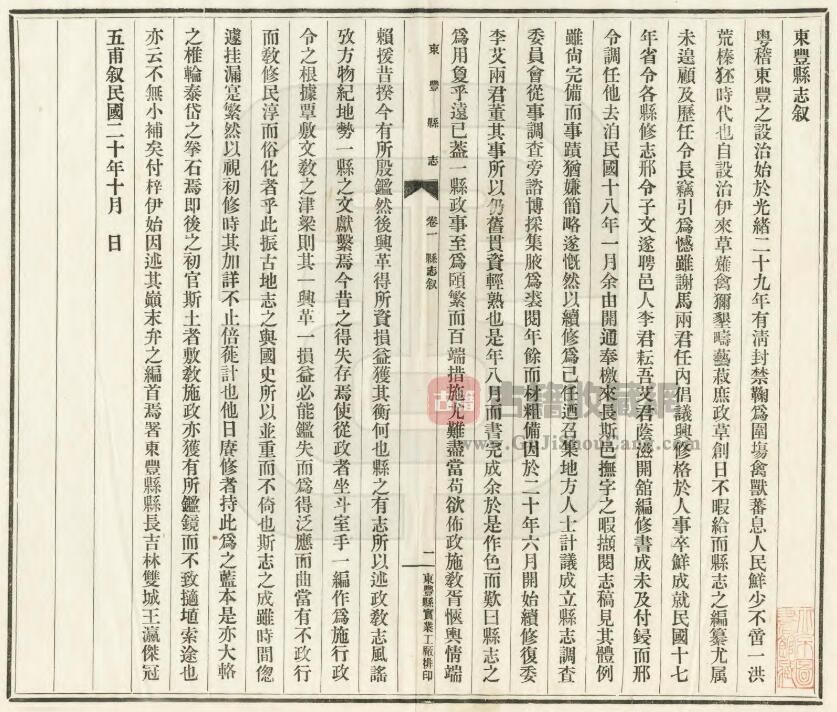 東豐縣志叙
粵稽東豐之設治始於光緒二十九年有淸封禁鞠爲圍塲禽獸蕃息人民鮮少不啻一洪
荒榛狉時代也自設治伊來草薙禽獮墾疇藝菽庶政草創日不暇給而縣志之編纂尤屬
未遑顧及歷任令長竊引爲憾雖謝馬兩君任內倡議興修格於人事卒鮮成就民國十七
年省令各縣修志邢令子文遂聘邑人李君耘吾艾君蔭滋開舘編修書成未及付鋟而邢
令調任他去洎民國十八年一月余由開通奉檄來長斯邑撫字之暇擷閱志稿見其體例
雖尙完備而事蹟猶嫌簡略遂慨然以續修爲己任迺召集地方人士計議成立縣志調查
委員會從事調查旁諮博採集腋爲裘閱年餘而材料備因於二十年六月開始續修復委
李艾兩君董其事所以仍舊貫資輕熟也是年八月而書完成余於是作色而歎曰縣志之
爲用敻乎遠已葢一縣政事至爲頤繁而百端措施尤難盡當苟欲佈政施敎胥愜輿情端
東豐縣志
卷一 縣志叙
一
東豐縣實業工廠排印
賴援昔揆今有所殷鑑然後興革得所資損益獲其衡何也縣之有志所以述政敎志風謠
攷方物紀地勢一縣之文獻繫焉今昔之得失存焉使從政者坐斗室手一編作爲施行政
令之根據覃敷文敎之津梁則其一興革一損益必能鑑失而爲得泛應而曲當有不政行
而敎修民淳而俗化者乎此振古地志之與國史所以並重而不倚也斯志之成雖時間偬
遽挂漏寔繁然以視初修時其加詳不止倍蓰計也他日賡修者持此爲之藍本是亦大輅
之椎輪泰岱之拳石焉卽後之初官斯土者敷敎施政亦獲有所鑑鏡而不致擿埴索途也
亦云不無小補矣付梓伊始因述其巔末弁之編首焉署東豐縣縣長吉林雙城王瀛傑冠
五甫叙民國二十年十月 日
古籍
古籍收藏網
www.GuJiShouCang.com